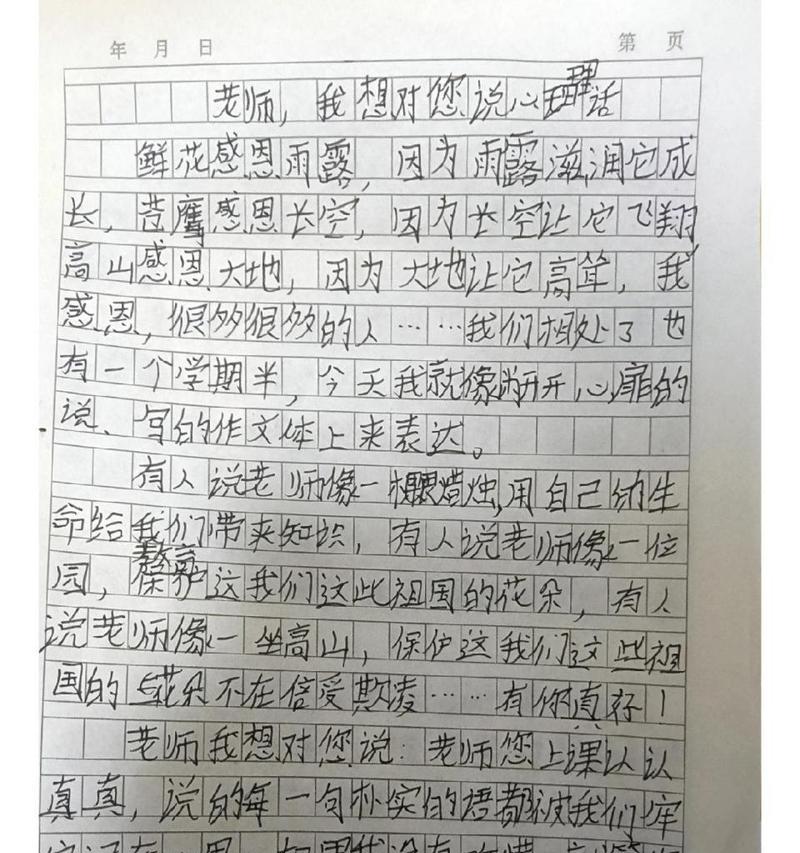 年 月 日
第 页
老师，我想对您说心理话
鲜花感恩雨露，因为雨露滋润它成
长，苍鹰感恩长空，因为长空让它飞翔，
高山感恩大地，因为大地让它高耸，我
感恩，很多很多的人……我们相处了也
有一个学期半，今天我就像打开心扉的
说、写的作文体上来表达。
有人说老师像一根蜡烛，用自己的生
命给我们带来知识，有人说老师像一位
园，教育这我们这些祖国的花朵，有人
说老师像一坐高山，保护这我们这些祖
国的花朵不在信受欺凌……有你真好！
老师我想对您说：老师您上课认认
真真，说的每一句朴实的语都被我们牢